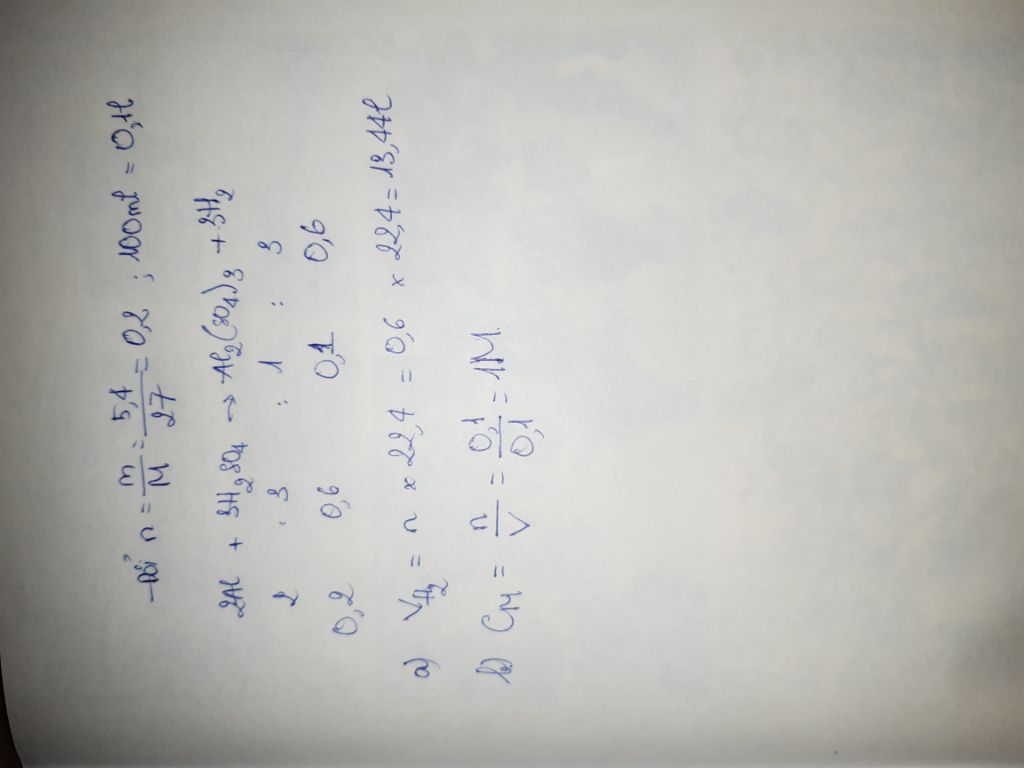 - Đổi n = m/M = 5,4/27 = 0,2 ; 100ml = 0,1l
2Al + 3H2SO4 → Al2(SO4)3 + 3H2
2 : 3 : 1 : 3
0,2 0,6 0,1 0,6
a) VH2 = n x 22,4 = 0,6 x 22,4 = 13,44l
b) CM = n/V = 0,1/0,1 = 1M